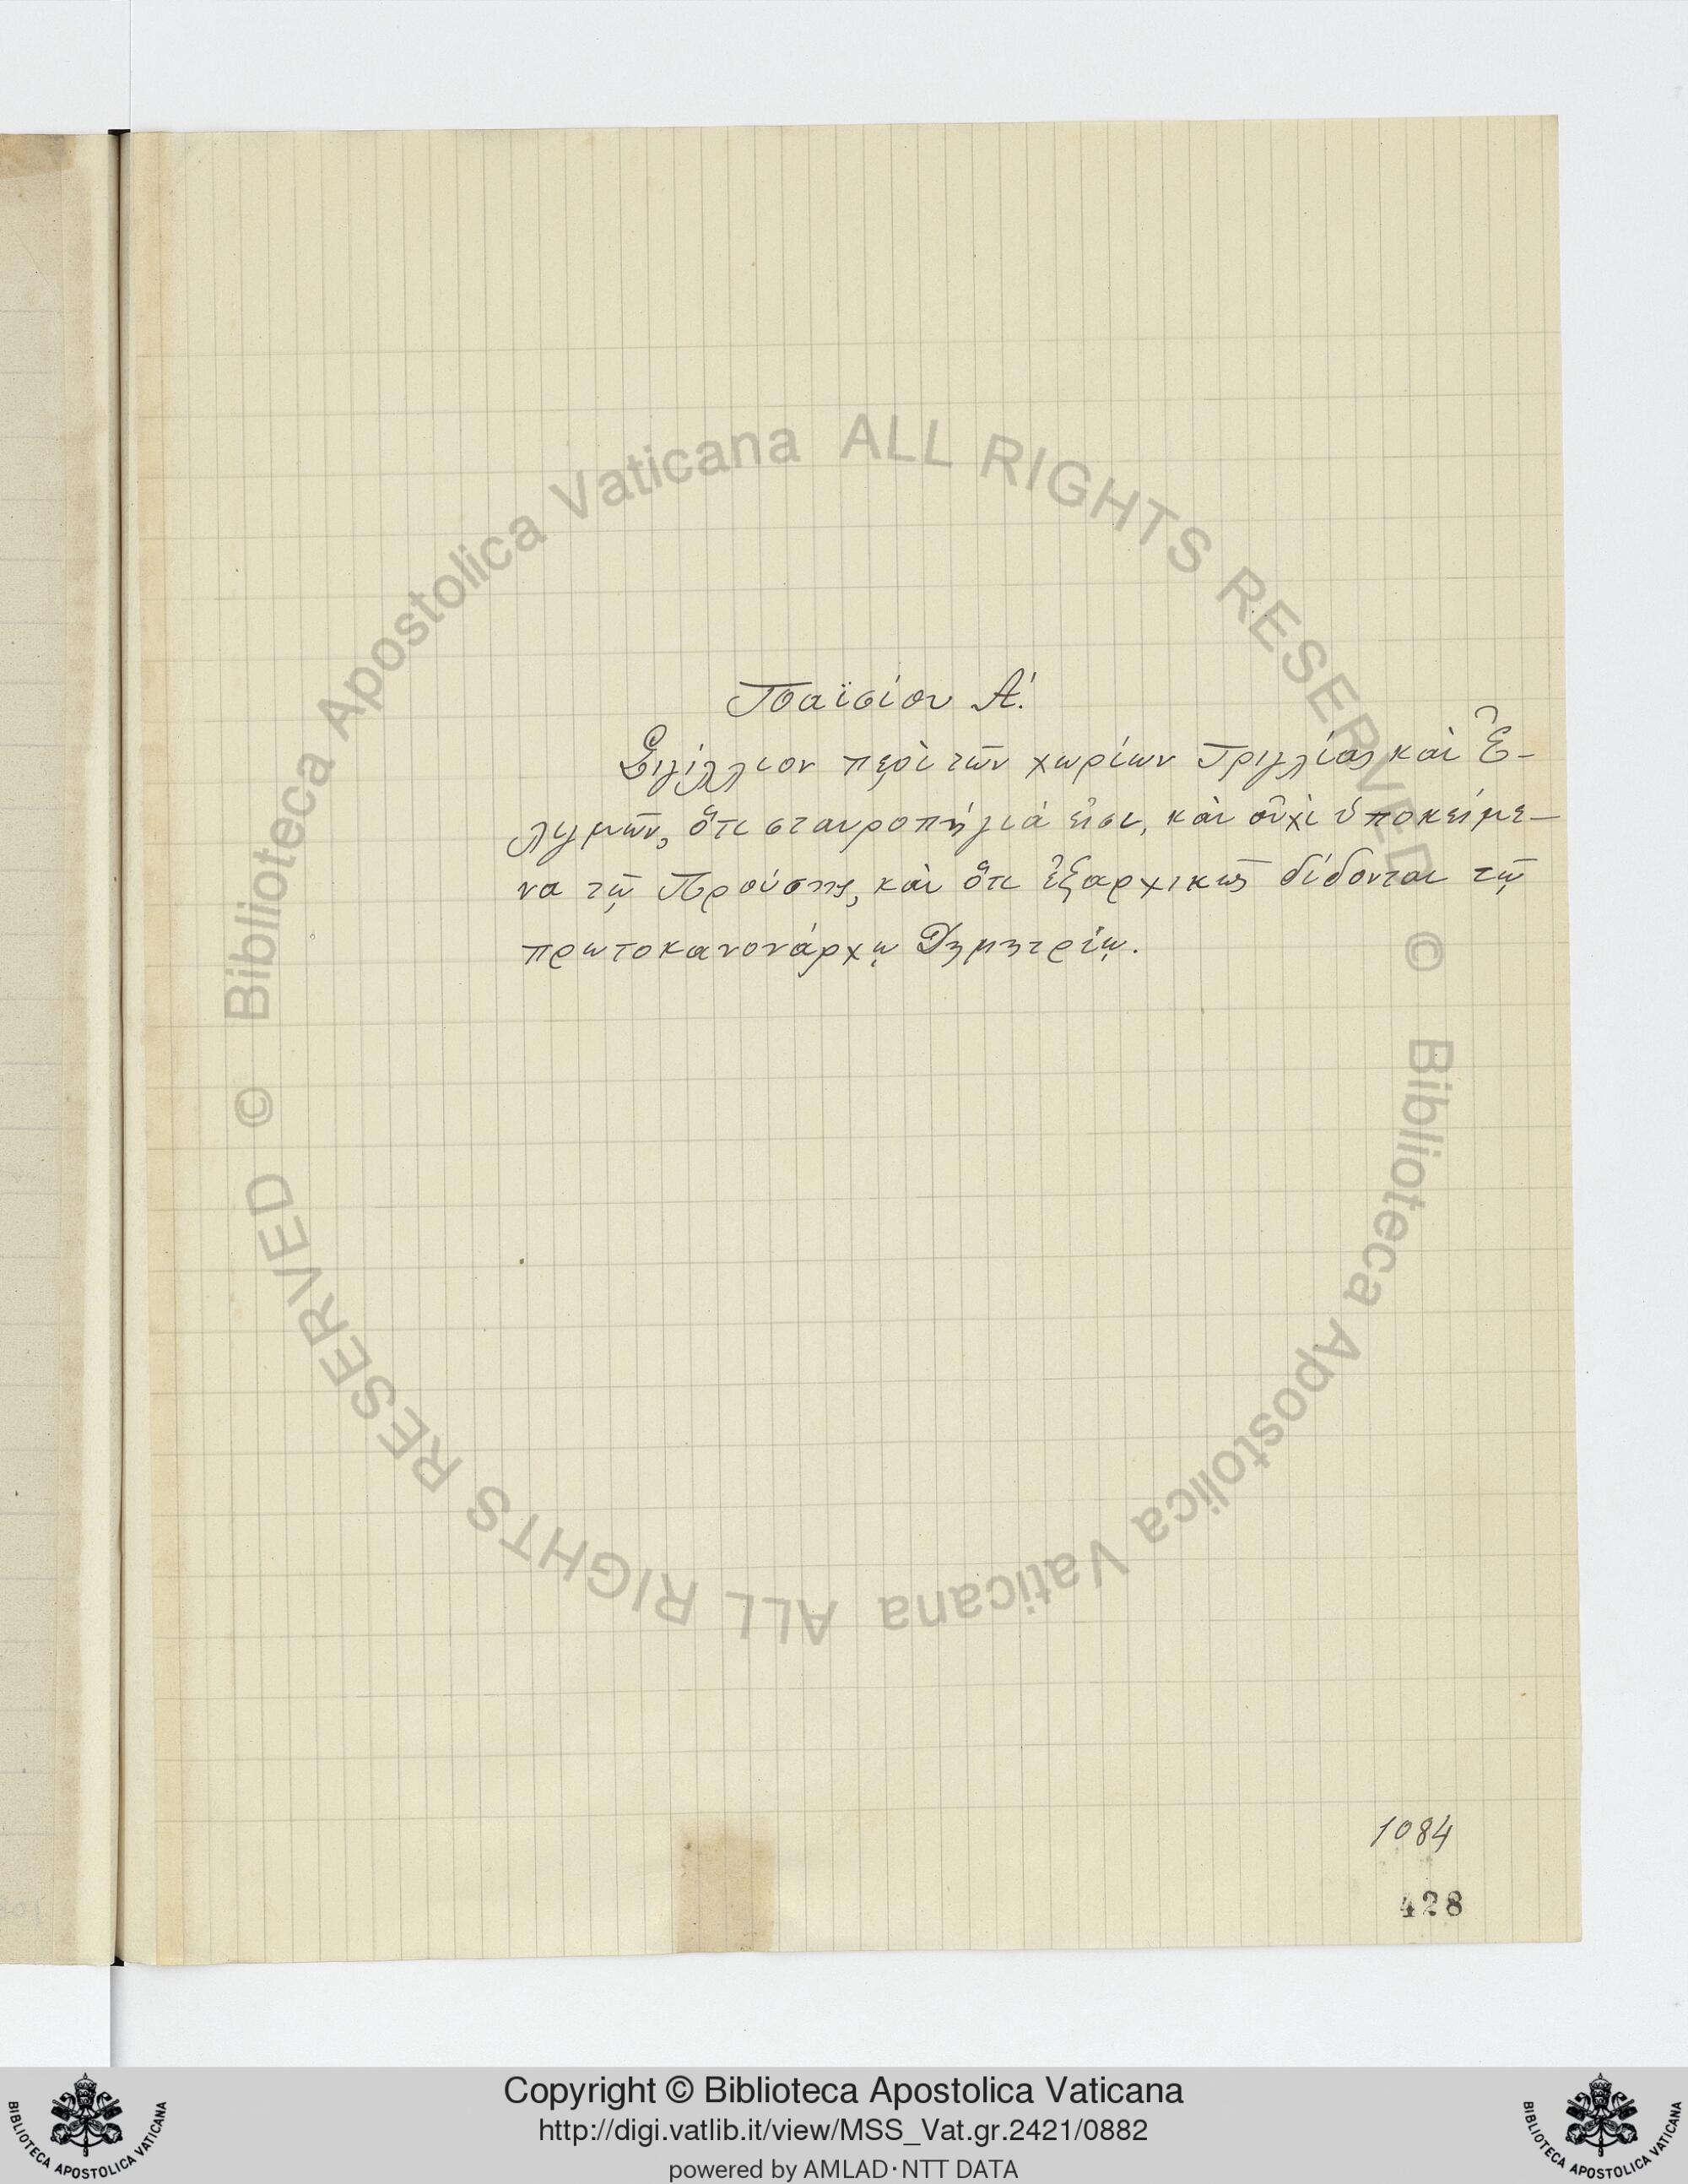 Παϊσίου Α'.
Σιγίλλιον περὶ τῶν χωρίων Τριγλίας καὶ Ἐ-
λιγμῶν, ὅτι σταυροπήγιά εἰσι, καὶ οὐχὶ ὑποκείμε-
να τῷ Προύσης, καὶ ὅτι ἐξαρχικῶς δίδονται τῷ
πρωτοκανονάρχῳ Δημητρίῳ.
1084
428
Biblioteca Apostolica Vaticana ALL RIGHTS RESERVED ©
Biblioteca Apostolica Vaticana ALL RIGHTS RESERVED ©
Copyright © Biblioteca Apostolica Vaticana
http://digi.vatlib.it/view/MSS_Vat.gr.2421/0882
powered by AMLAD·NTT DATA
BIBLIOTECA APOSTOLICA VATICANA
BIBLIOTECA APOSTOLICA VATICANA